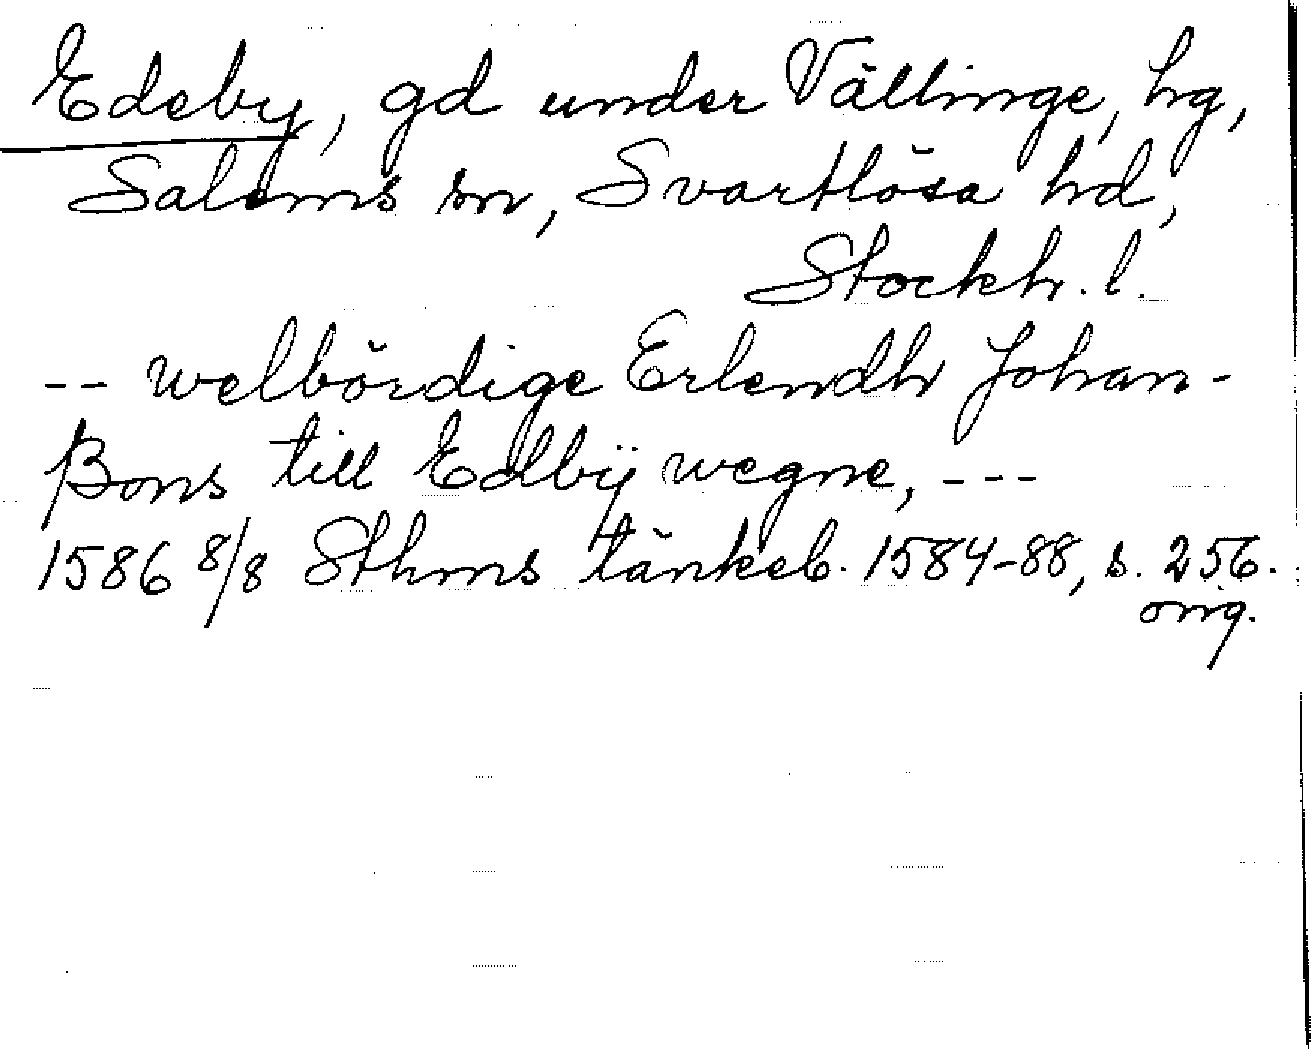 Edeby, gd under Vällinge, hg,
Salems sn, Svartlösa hd,
Stockh. l.
-- welbördige Erlendh Johan-
ßons till Edbÿ wegne, ---
1586 8/8 Sthms tänkeb. 1584-88, s. 256.
orig.